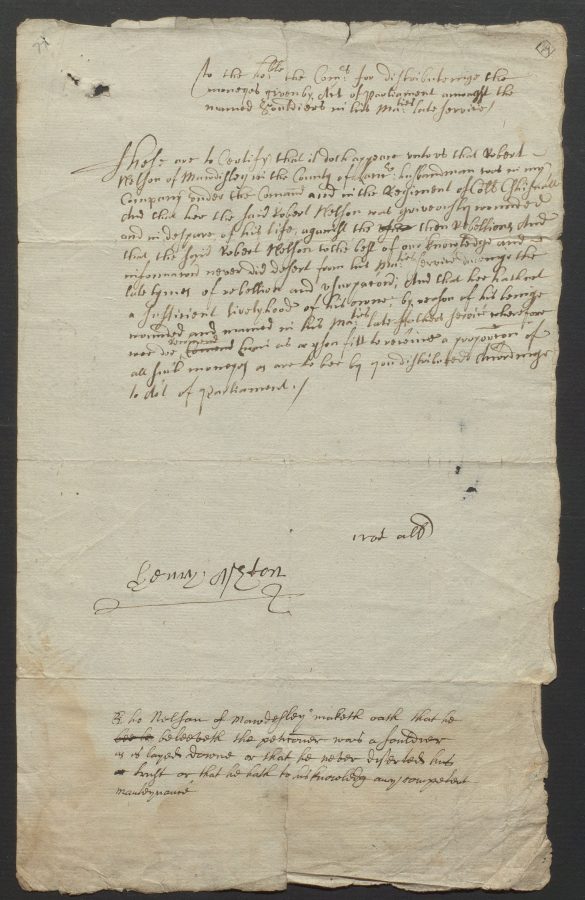 To the ho:ble the Com:rs for distributeinge the
moneyes given by Act of Parliament amongst the
named Souldiers in his Ma:ties late service /
These are to Certify that it doth appeare unto us that Robert
Nelson of Mawdisley in the County of Lanc: husbandman was in my
Company under the Comand and in the Regiment of Coll:
And that hee the said Robert Nelson was grievously wounded
and in despare of his life, against the then Rebellious And
that the said Robert Nelson to the best of our knowledge and
informacon never did desert from his Ma:ties service duringe the
late tymes of rebellion and usurpacon, And that hee hath not
a sufficient livelyhood of his owne by reason of his beinge
wounded and maimed in his Ma:ties late ffathers service wherefore
wee doe him as a p'son fitt to receive a proporcon of
all such moneyes as are to bee by you distributed Accordinge
to Act of Parliament. /
not all
Henry Ashton
Nelson of Mawdesley maketh oath that he
beleeveth the peticoner was a souldier
as is layed downe or that he never diserted his
trust or that he hath to his knowledg any competent
mainteynance